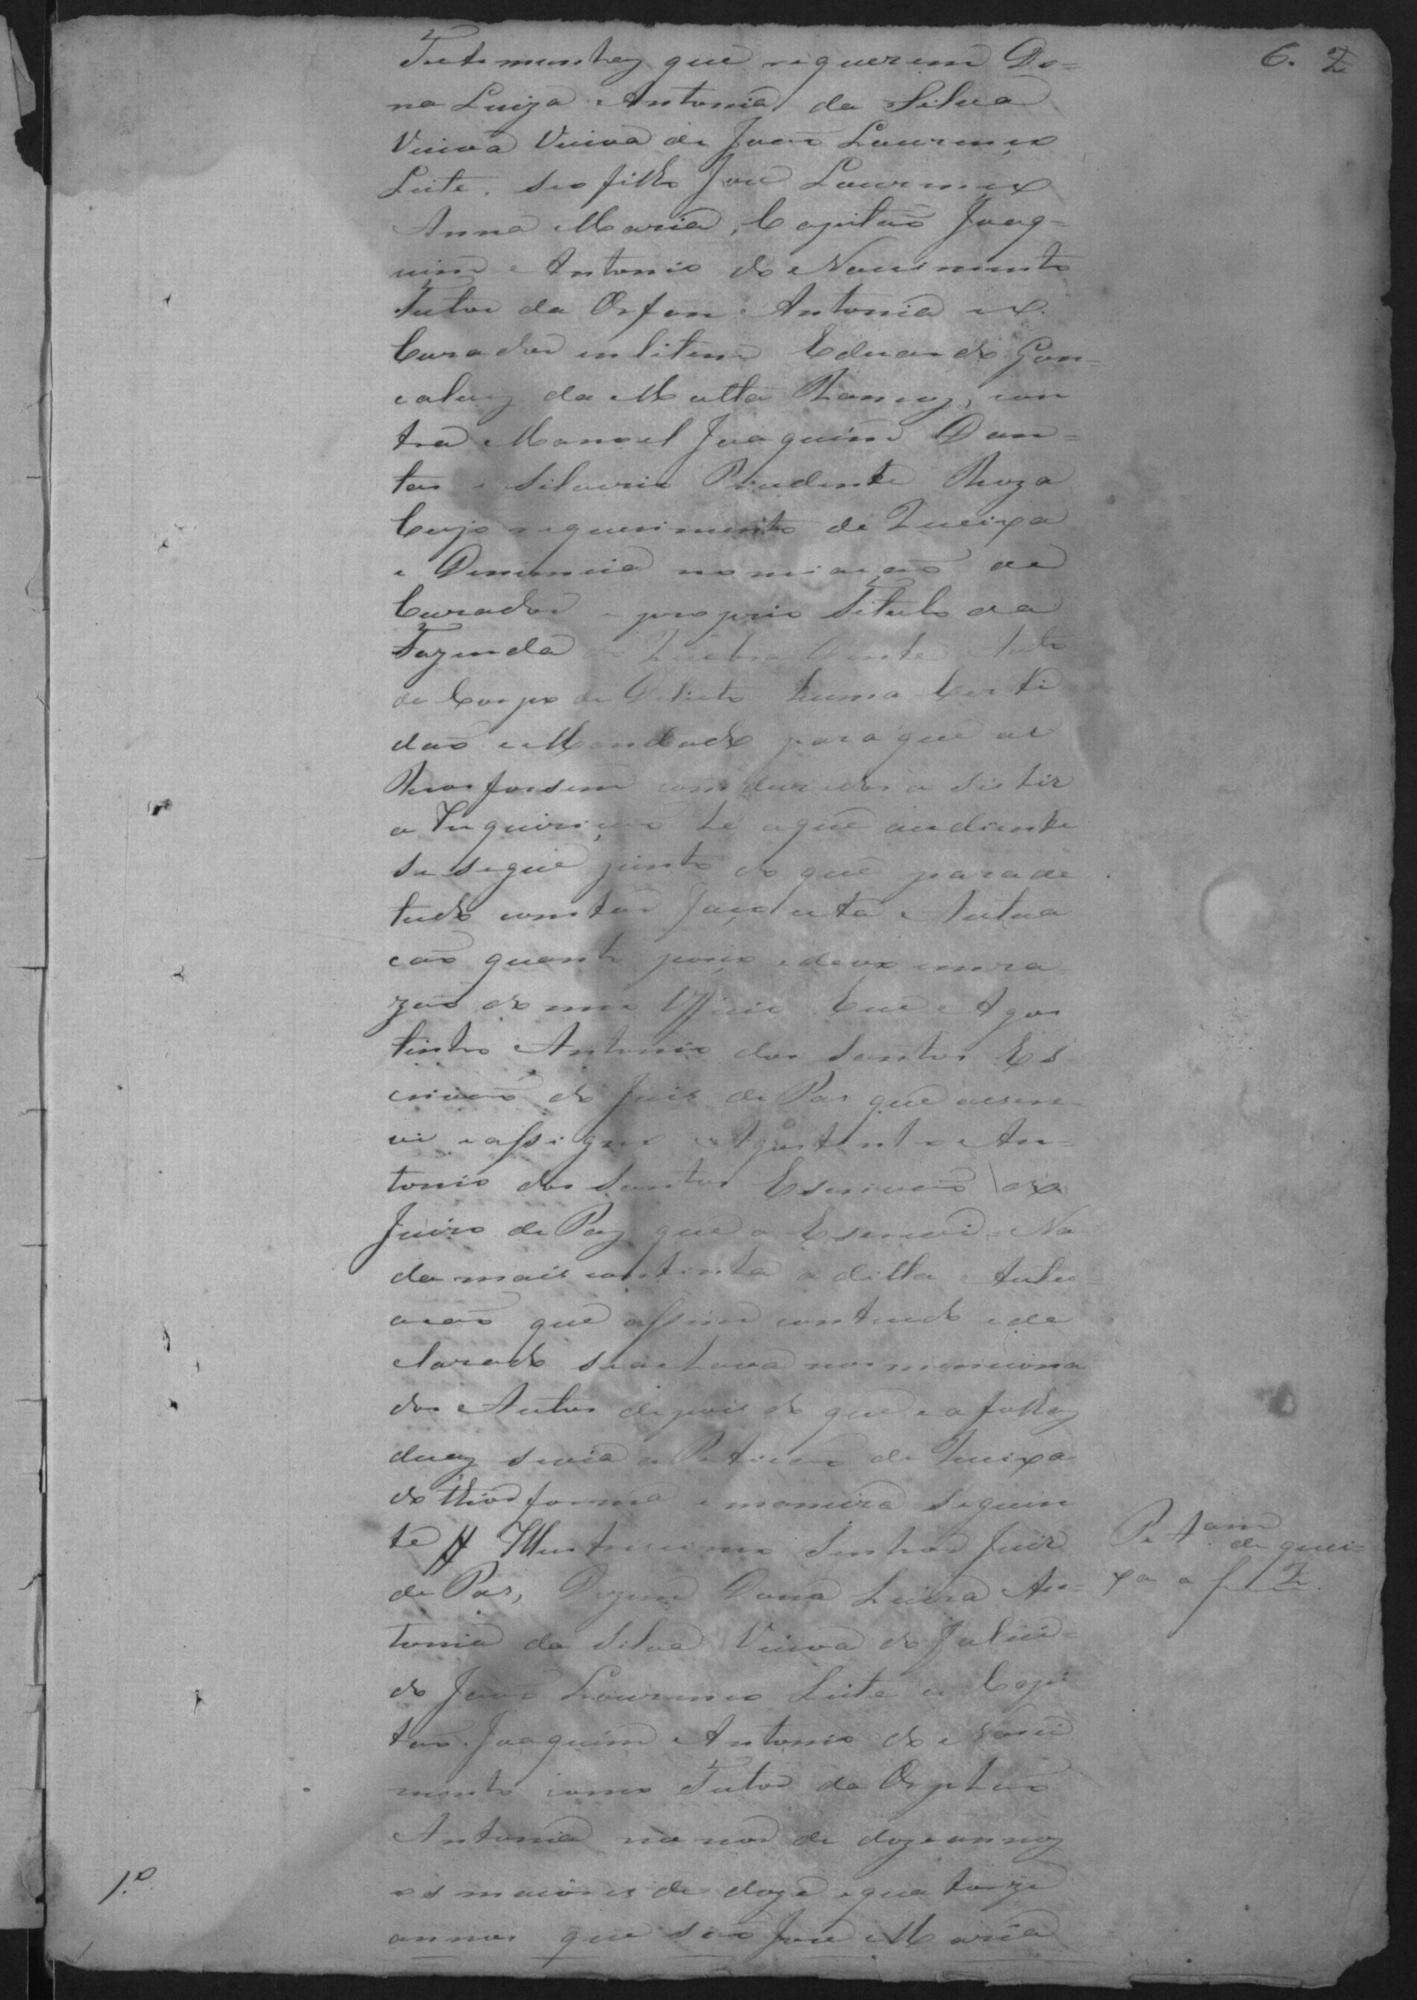 6. 2
Testemunhas que requerem Do=
na Luiza Antonia da Silva
Viuva Viuva de João Lourenço
Leite, seo filho José Lourenço
Anna Maria, Capitão Joaq=
uim Antonio do Nascimento
Tutor da Orfan Antonia eo
Curador inlitem Eduardo Gon=
calves da Matta Ramos, con
tra Manoel Joaquim Dan=
tas e Silverio Prudente Roza
Cujo requerimento de Queixa
e Denuncia nomiação de
Curador e proprio Titulo da
Fazenda Auto
de Corpo de Delicto huma Certi
dão e Mandado para que os
Reos fossem conduzidos a sistir
a Inquirição he aque audiante
se segue junto do que para de
tudo constar faço esta Autua
cão quanto posso e devo em ra
zão do meu Officio Eu Agos
tinho Antonio dos Santos Es
crivão do Juis de Pas que escre
vi e assigno Agostinho An=
tonio dos Santos Escrivão do
Juizo de Paz que o Escrevi = Na
da mais continha a ditta Autu
acão que assim contendo e de
clarado se achava nos menciona
dos Autos depois do que e a folhas
duas se via a Peticão de Queixa
do theor forma e maneira seguin
te // Illustrissimo Senhor Juiz
de Pas, Dizem Dona Luiza An=
tonia da Silva Viuva do Faleci=
do João Lourenço Leite e o Capi
tão Joaquim Antonio do Nasci
mento como Tutor da Orphão
Antonia menor de doze annos
os maiores de doze e quatorze
annos que são José Maria
Petçam
de quei=
xa a f 2
1.º